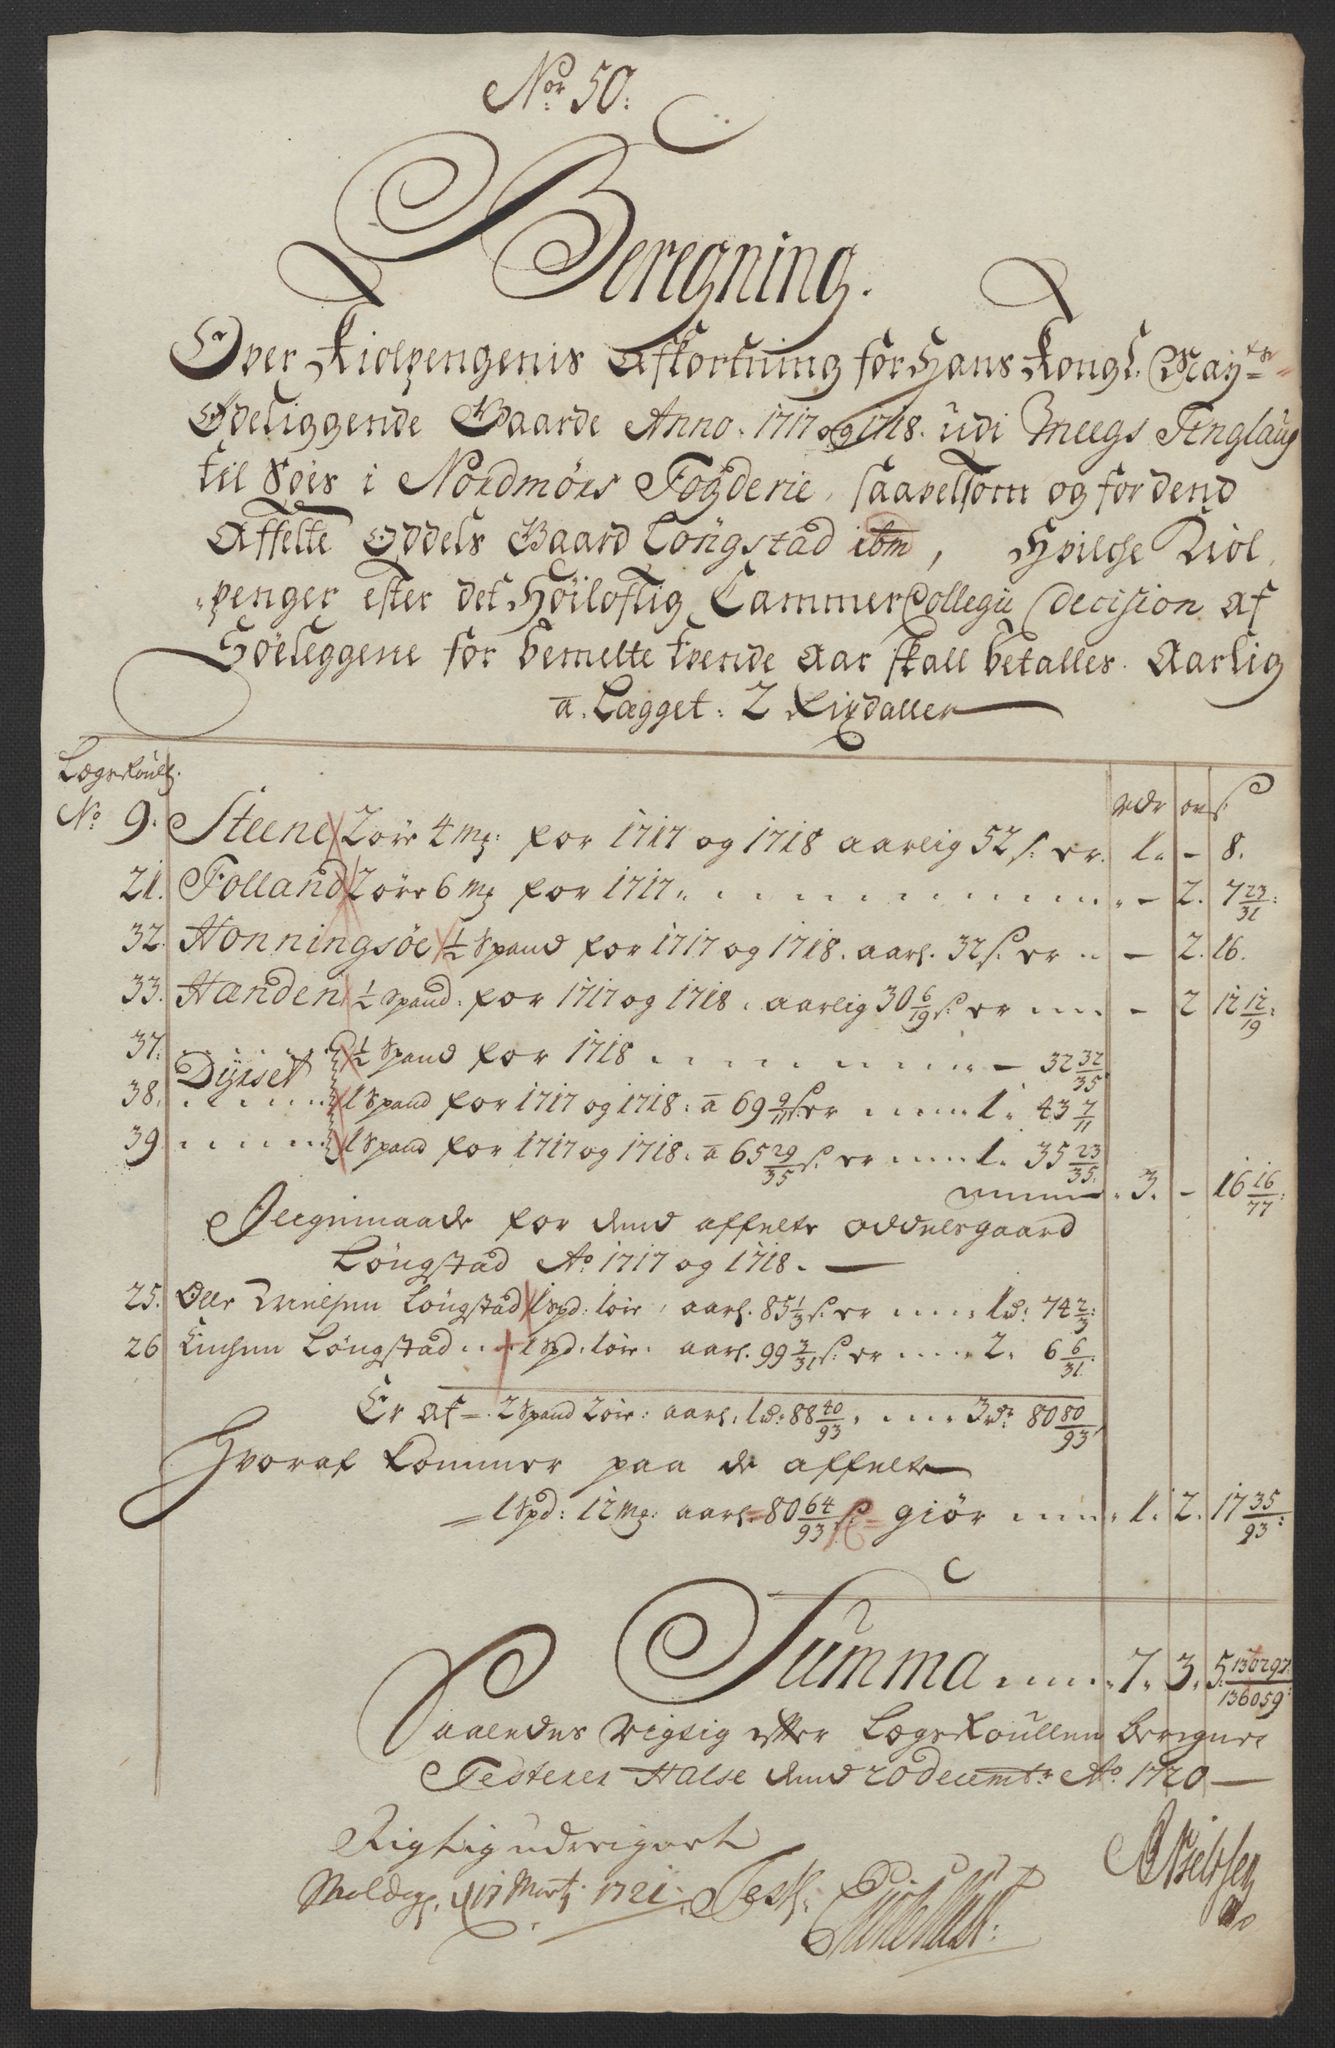 Nor. 50:
Beregning.
Over Kiolpengenis Afkortning for Hans Kongl. May.ts
Ødeliggende Gaarde Anno. 1717 og 1718. udi Meegs Tinglaug
til Søes i Nordmørs Fogderie, saavelsom og for dend
Affelte Oddels Gaard Løngstad ibm, Hvilche Kiol
penger efter det Høiloflig Cammer Collegii Decision af
Søeleggene for bemelte tvende Aar skall betalles. Aarlig
a. Lægget. 2 Rixdaller
Lægs Roull.
rdr ort s.
No 9. Steene 2 ører 4 mg: for 1717 og 1718 aarlig 52 s: er. 1. - 8.
21. Folland 2 øre 6 mg for 1717. - 2. 7 23/31:
32. Honningsøe 1/2 Spand for 1717 og 1718. aarl. 32 s. er - 2. 16.
33. Hænden 1/2 Spand. for 1717 og 1718. aarlig 30 6/19 s. er - 2 12 12/19:
37. 1/2 Spand for 1718 - 32 32/35
Dyrset
38. 1 Spand for 1717 og 1718: a 69 9/11 s. er 1. 43 7/11
39 1 Spand for 1717 og 1718. a 65 29/35 s. er 1. 35 23/35.
3. - 16 16/77:
Ligemaade for dend affelte oddelsgaard
Løngstad Ao 1717 og 1718.
25. Olle Nielsen Løngstad 1 Spd: 1 øre, aarl. 85 1/3 s. er 1 d: 74 2/3:
26 Løngstad 1 Spd. 1 øre. aarl. 99 3/31 s: er 2. 6 6/31.
Er af 2 Spand 2 øre: aarl. 1 d: 88 40/93. 3 dr 80 80/93
Hvoraf kommer paa de affelte
1 Spd: 12 mg: aarl. 80 64/93 s. giør 1. 2. 17 35/93:
Summa 7. 3. 5. 130297/136059:
Saaledes rigtig efter Lægs Roullen beregnet
Testerer Halse dend 20 decembr Ao 1720
Rigtig udregnet
Molde, d 17 Marty 1721. Test.